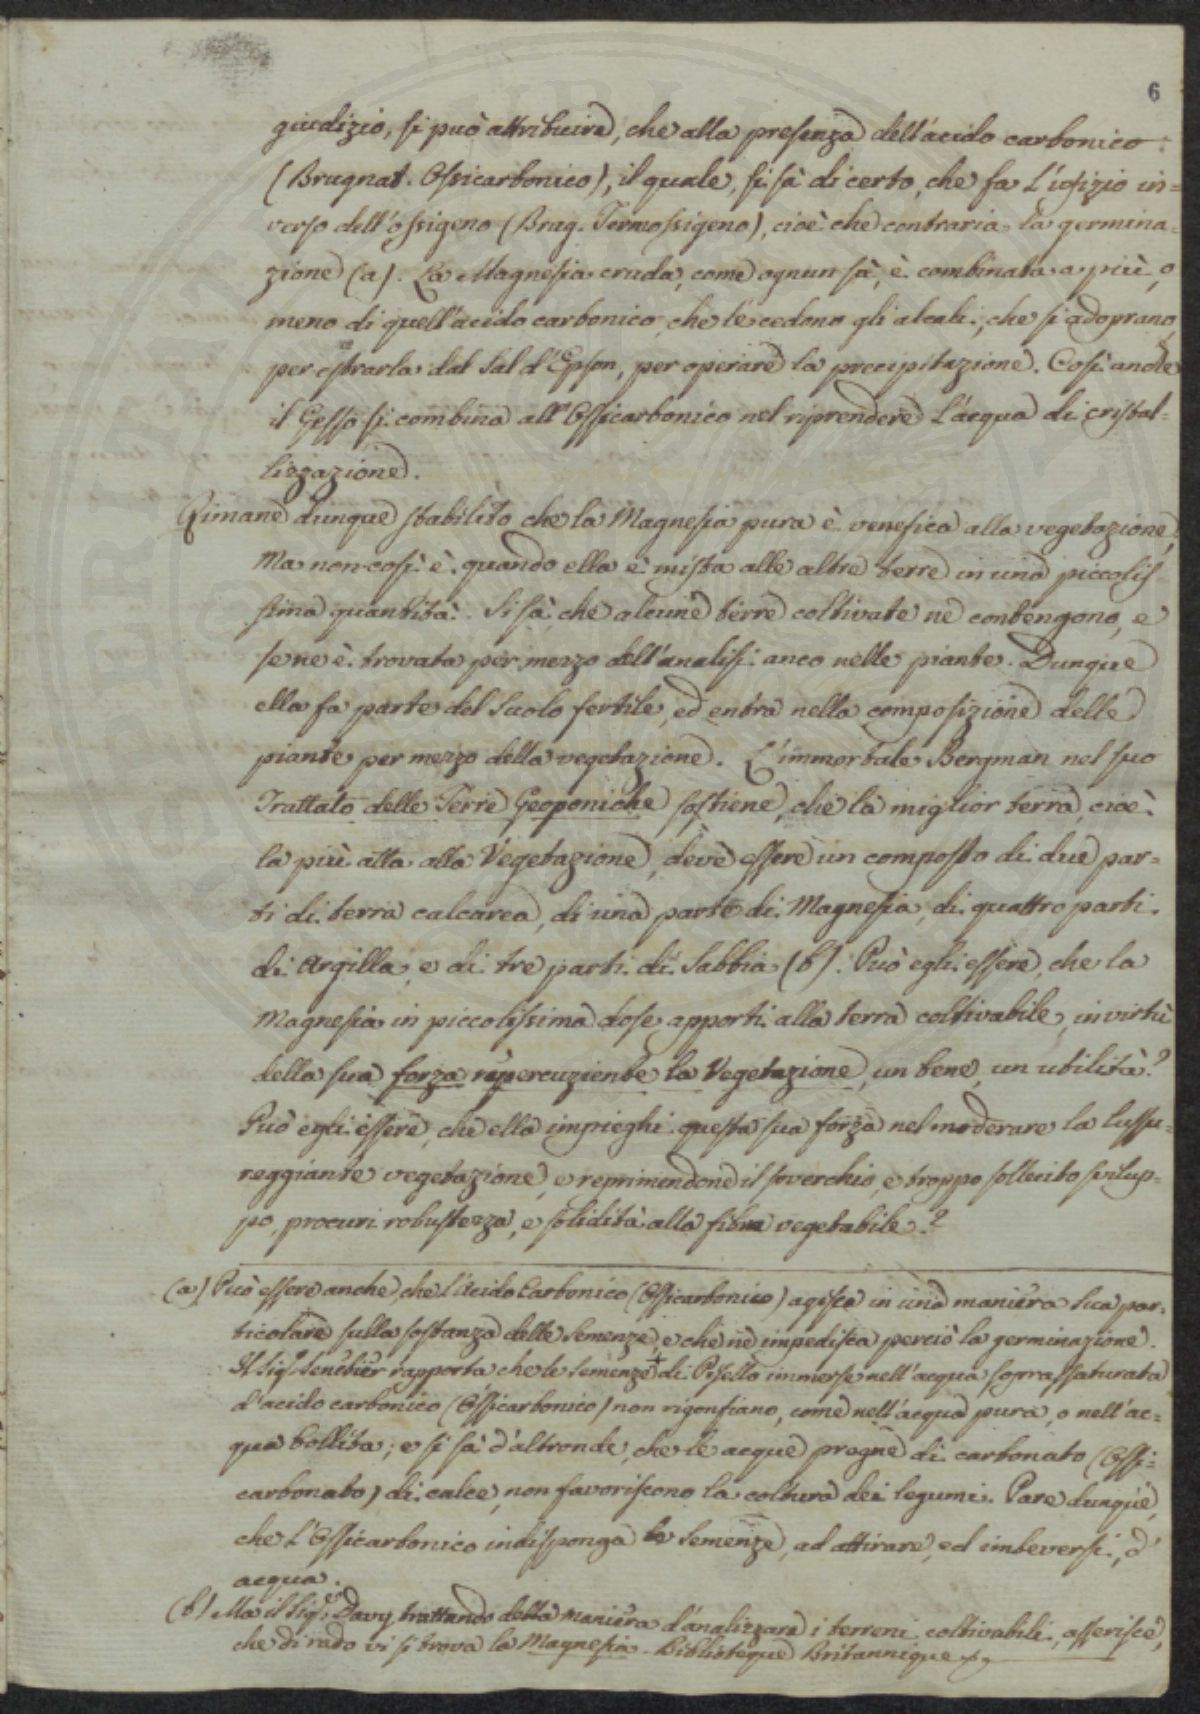 6
giudizio, si può attribuire, che alla presenza dell'acido carbonico
(Brugnat. Ossicarbonico), il quale, si sà di certo, che fa l'ufizio in=
verso dell'ossigeno (Brug. Termossigeno), cioè che contraria la germina=
zione (a). La Magnesia cruda, come ognun sà, è combinata a più, o
meno di quell'acido carbonico, che le cedono gli alcali, che si adoprano,
per estrarla dal Sal d'Epson, per operare la precipitazione. Così anche
il Gesso si combina all'Ossicarbonico nel riprendere l'acqua di cristal-
lizzazione.
Rimane dunque stabilito che la Magnesia pura è venefica alla vegetazione,
Ma non così è quando ella è mista alle altre terre in una piccolis-
sima quantità. Si sà che alcune terre coltivate ne contengono, e
se ne è trovata per mezzo dell'analisi anco nelle piante. Dunque
ella fa parte del Suolo fertile, ed entra nella composizione delle
piante per mezzo della vegetazione. L'immortale Bergman nel suo
Trattato delle Terre Geoponiche sostiene, che la miglior terra, cioè
la più atta alla Vegetazione, deve essere un composto di due par=
ti di terra calcarea, di una parte di Magnesia, di quattro parti
di Argilla, e di tre parti di Sabbia (b). Può egli essere, che la
Magnesia in piccolissima dose, apporti alla terra coltivabile, in virtù
della sua forza repercuziente la Vegetazione, un bene, un utilità?
Può egli essere, che ella impieghi questa sua forza nel moderare la lussu=
reggiante vegetazione, e reprimendone il soverchio, e troppo sollecito svilup=
po, procuri robustezza, e solidità alla fibra vegetabile?
(a) Può essere anche, che l'Acido Carbonico (Ossicarbonico) agisca in una maniera sua par=
ticolare sulla sostanza delle Semenze, e che ne impedisca perciò la germinazione.
Il Sigr. Senebier rapporta che le Semenze + di Pisello immerse nell'acqua soprassaturata
d'acido carbonico (Ossicarbonico) non rigonfiano, come nell'acqua pura, o nell'ac=
qua bollita; e si sà d'altronde, che le acque pregne di carbonato (Ossi=
carbonato) di calce, non favoriscono la coltura dei legumi. Pare dunque,
che l'Ossicarbonico indisponga le Semenze, ad attirare, ed imbeversi, d'
acqua.
(b) Ma il Sigr. Davy, trattando della maniera d'analizzare i terreni coltivabili, asserisce,
che di rado vi si trova la Magnesia. Biblioteque Britannique